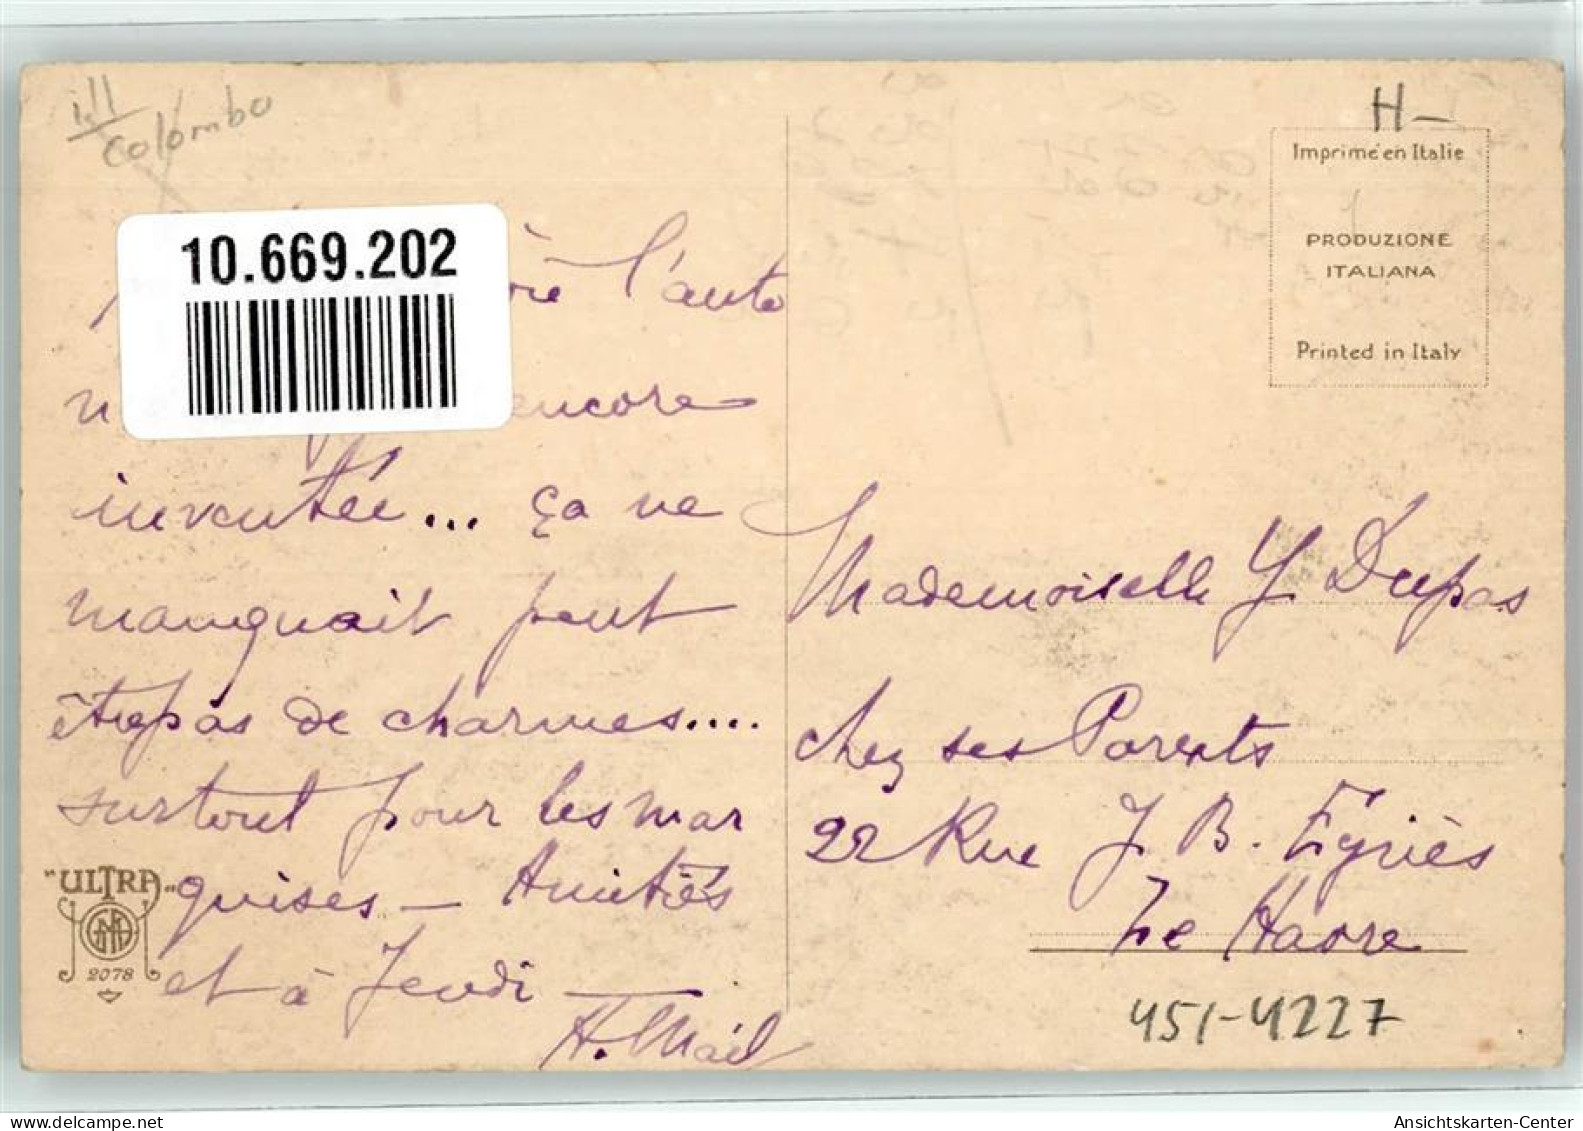 ill
Colombo
H-
Imprimé en Italie
PRODUZIONE
ITALIANA
Printed in Italy
10.669.202
l'auto
encore
inventée... ça ne
manquait peut
être pas de charmes....
surtout pour les mar
quises — Amitiés
et à Jeudi —
"ULTRA"
2078
Mademoiselle Y Dupas
chez ses Parents
22 Rue J. B. Eyriès
Le Havre
451-4227
Ansichtskarten-Center